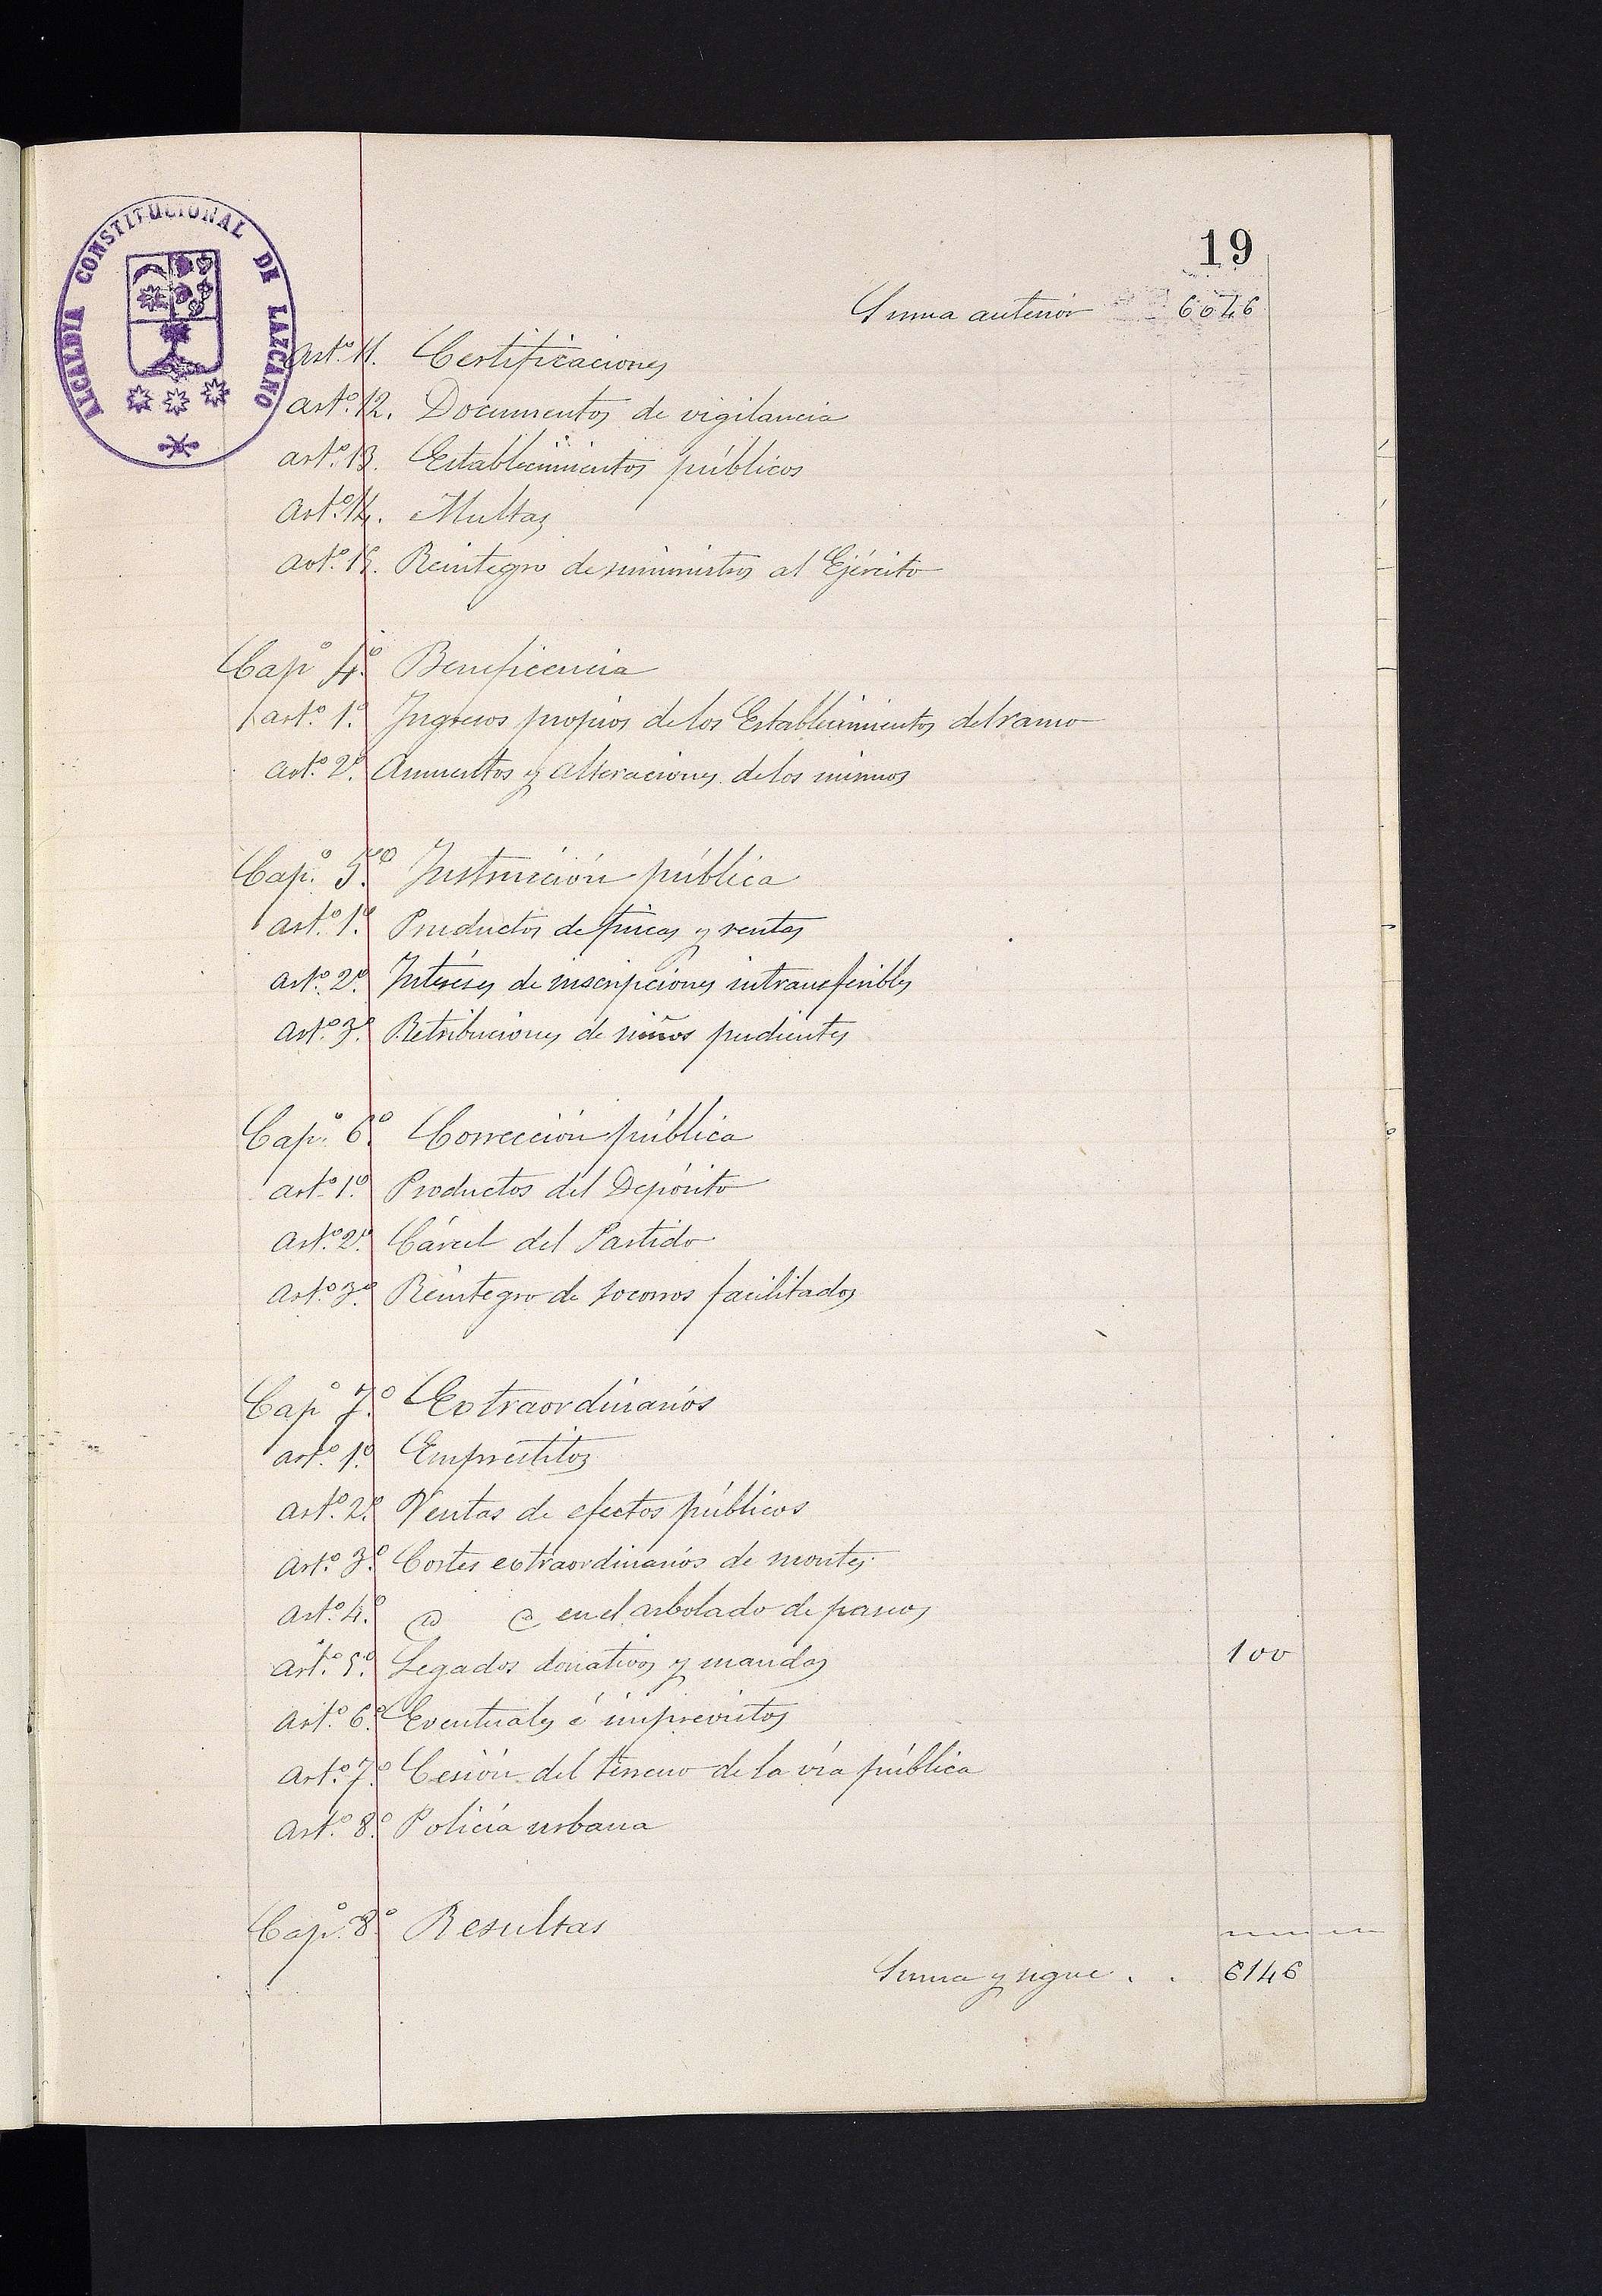 19
ALCALDIA CONSTITUCIONAL DE LAZCANO
Suma anterior 6046
Art.º 11. Certificaciones
Art.º 12. Documentos de vigilancia
Art.º 13. Establecimientos públicos
Art.º 14. Multas
Art.º 15. Reintegro de suministros al Ejército
Cap.º 4.º Beneficencia
Art.º 1.º Ingresos propios de los Establecimientos del ramo
Art.º 2.º Aumentos y alteraciones de los mismos
Cap.º 5.º Instrucción pública
Art.º 1.º Productos de fincas y rentas
Art.º 2.º Intereses de inscripciones intransferibles
Art.º 3.º Retribuciones de niños pudientes
Cap.º 6.º Corrección pública
Art.º 1.º Productos del Depósito
Art.º 2.º Cárcel del Partido
Art.º 3.º Reintegro de socorros facilitados
Cap.º 7.º Extraordinarios
Art.º 1.º Empréstitos
Art.º 2.º Ventas de efectos públicos
Art.º 3.º Cortes extraordinarios de montes
Art.º 4.º en el arbolado de paseos
Art.º 5.º Legados donativos y mandas 100
Art.º 6.º Eventuales é imprevistos
Art.º 7.º Cesión del terreno de la vía pública
Art.º 8.º Policía urbana
Cap.º 8.º Resultas
Suma y sigue . . 6146